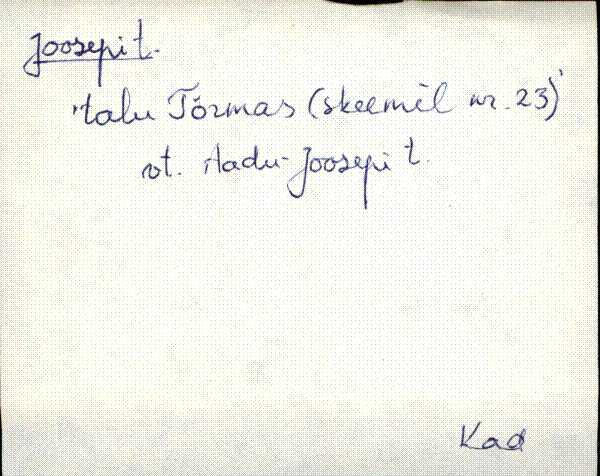 Joosepi t.
'talu Tõrmas (skeemil nr. 23)'
vt. Aadu-Joosepi t.
Kad